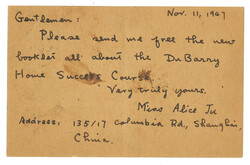 Nov. 11, 1947
Gentlemen:
Please send me free the new
booklet all about the DuBarry
Home Success Course.
Very truly yours.
Miss Alice Ju
Address: 135/17 Columbia Rd., Shanghai,
China.